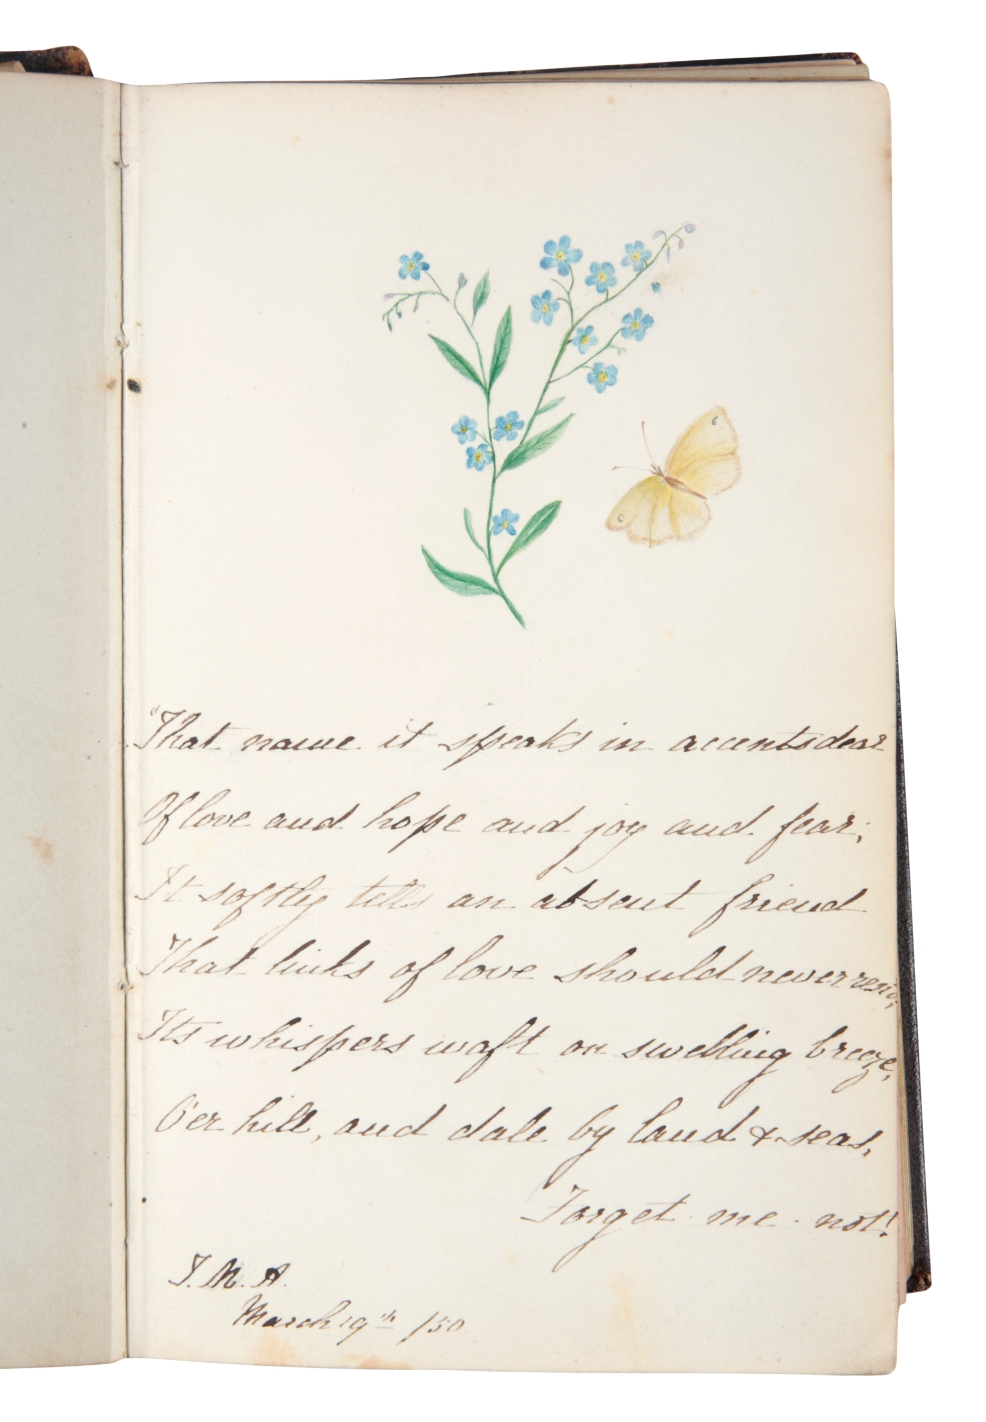 "That name it speaks in accents dear
Of love and hope and joy and fear;
It softly tells an absent friend
That links of love should never rend;
Its whispers waft on swelling breeze,
O'er hill, and dale by land & seas,
Forget · me · not!
J. M. A.
March 19th /50